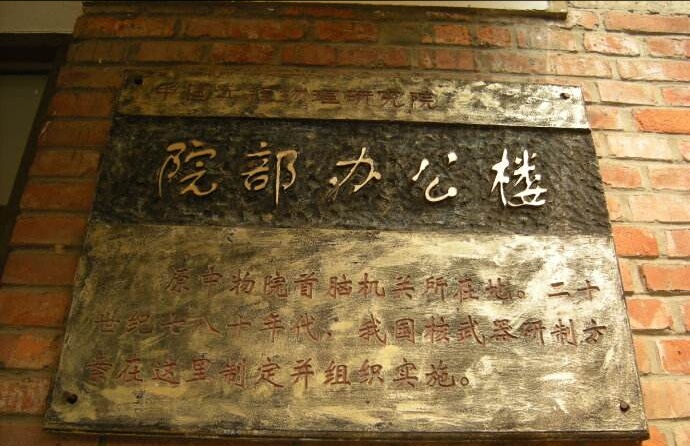 中国工程物理研究院
院部办公楼
原中物院首脑机关所在地。二十
世纪七八十年代，我国核武器研制方
案在这里制定并组织实施。